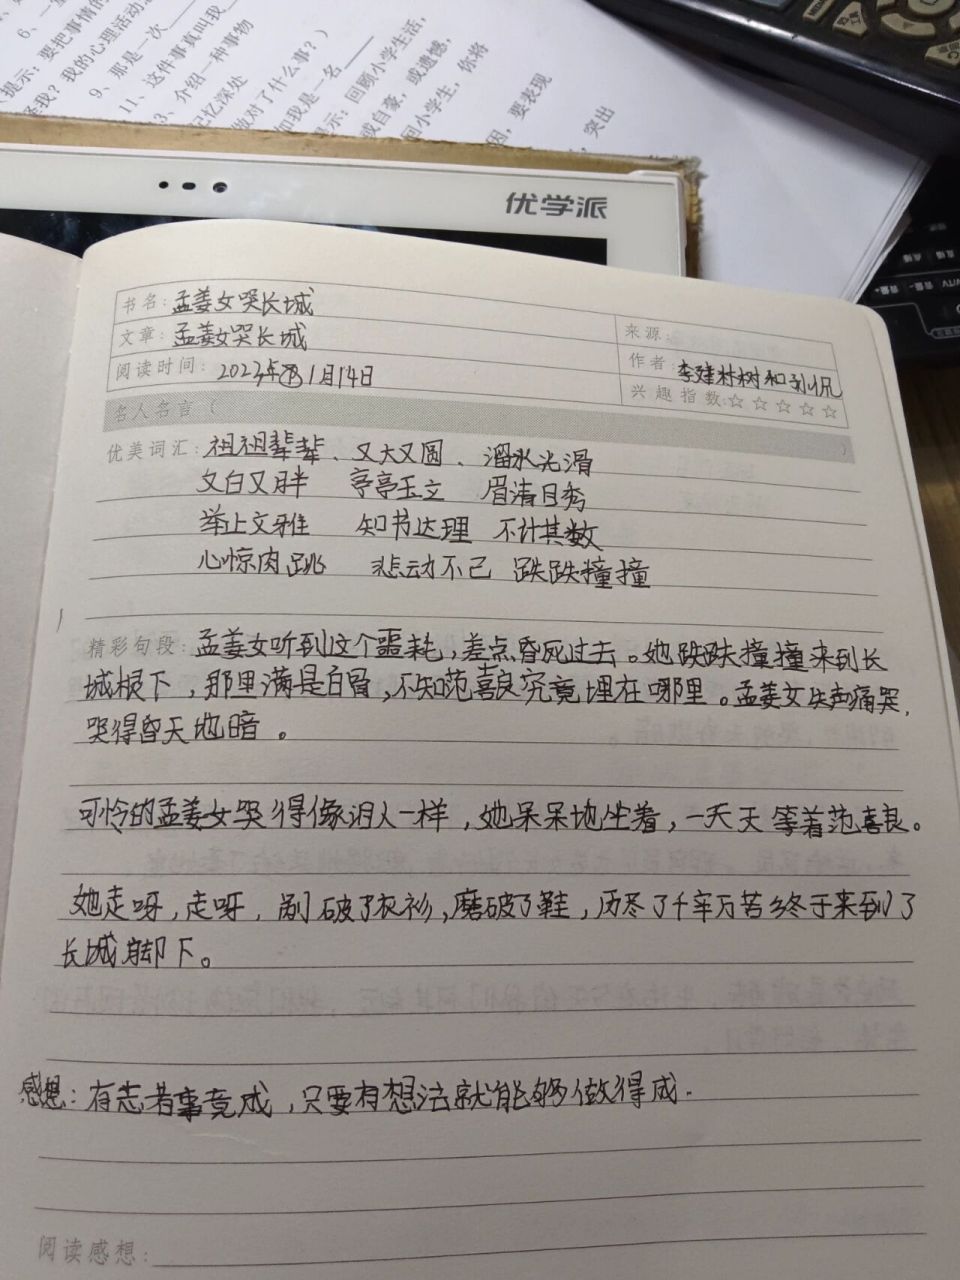 6、一
提示：要把事情的
怪我？我的心理活动
9、那是一次
11、这件事真叫我
3、介绍一种事物
记忆深处
做对了什么事？）
如我是一名
提示：回顾小学生活，
或自豪，或遗憾，
回小学生，你将
因，要表现
突出
优学派
书名：孟姜女哭长城
来源：
文章：孟姜女哭长城
作者：李建树和刘况
阅读时间：2023年1月14日
兴趣指数：☆☆☆☆☆
名人名言（ ）
优美词汇：祖祖辈辈、又大又圆、溜水光滑
又白又胖 亭亭玉立 眉清目秀
举止文雅 知书达理 不计其数
心惊肉跳 悲动不已 跌跌撞撞
精彩句段：孟姜女听到这个噩耗，差点昏死过去。她跌跌撞撞来到长
城根下，那里满是白骨，不知范喜良究竟埋在哪里。孟姜女失声痛哭，
哭得昏天地暗。
可怜的孟姜女哭得像泪人一样，她呆呆地坐着，一天天等着范喜良。
她走呀，走呀，刮破了衣衫，磨破了鞋，历尽了千辛万苦终于来到了
长城脚下。
感想：有志者事竟成，只要有想法就能够做得成.
阅读感想：